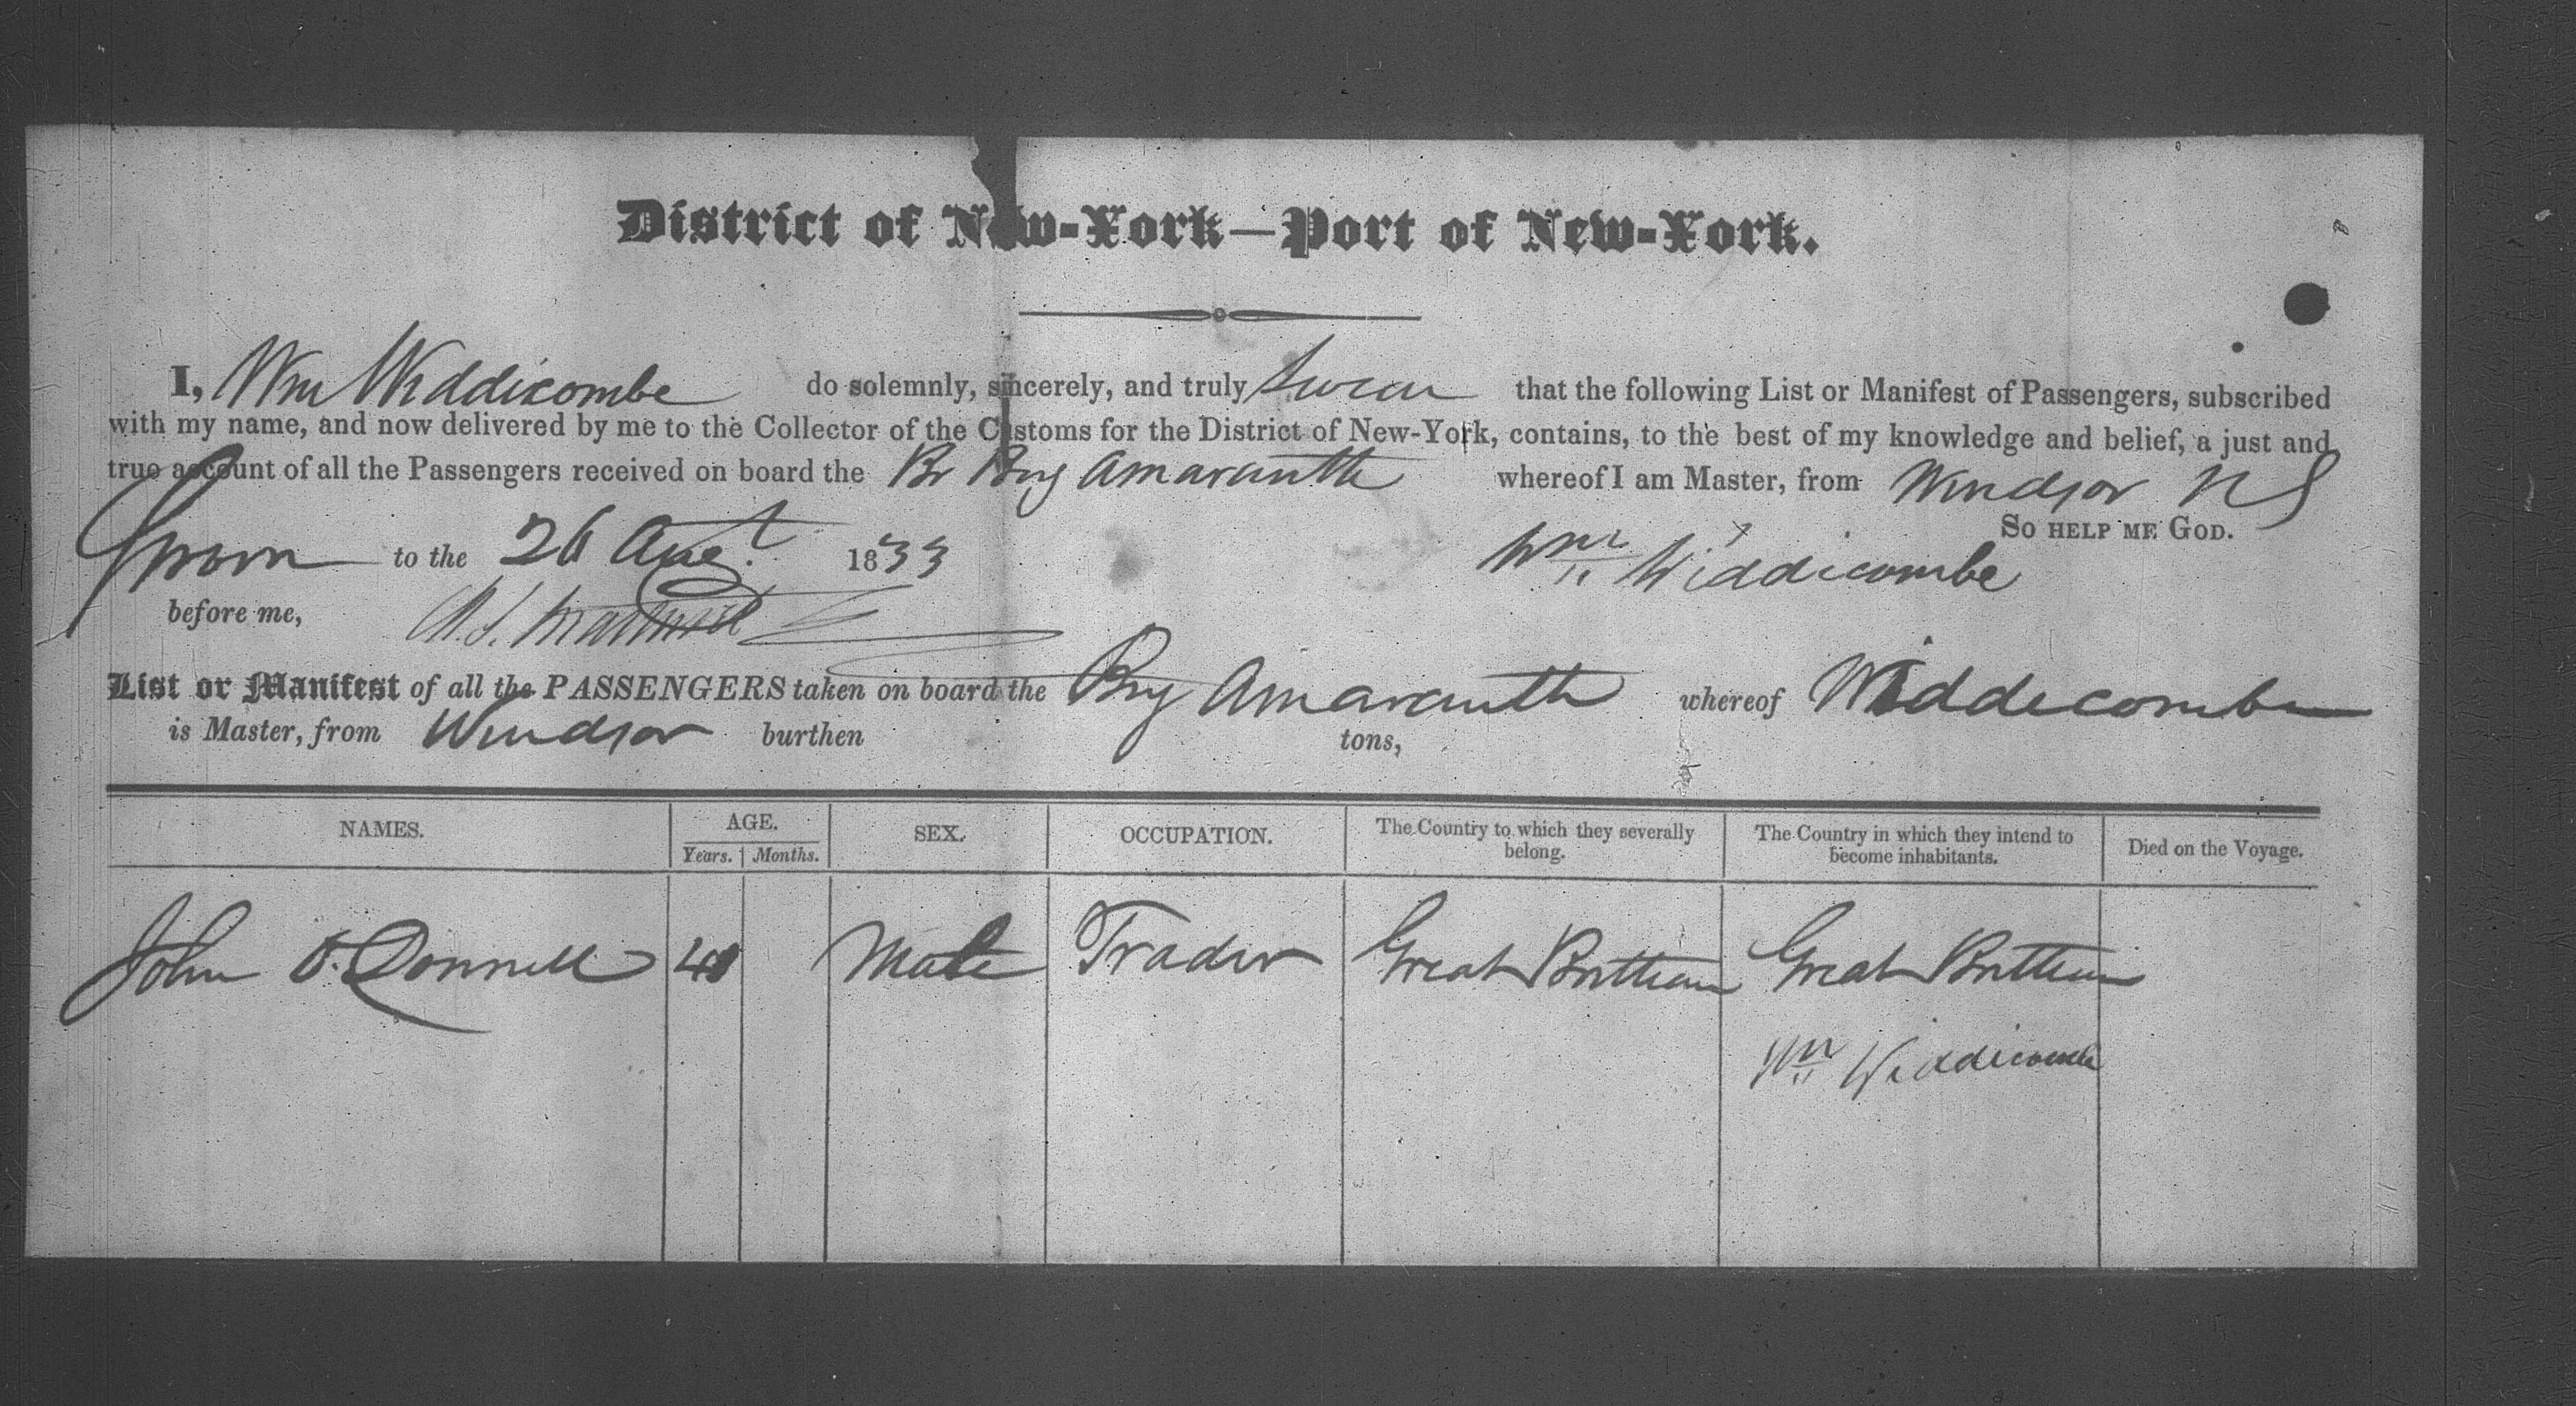 District of New-York—Port of New-York.
I, Wm Widdicombe do solemnly, sincerely, and truly swear that the following List or Manifest of Passengers, subscribed
with my name, and now delivered by me to the Collector of the Customs for the District of New-York, contains, to the best of my knowledge and belief, a just and
true account of all the Passengers received on board the Br Brig Amaranth whereof I am Master, from Windsor NS
So help me God.
Sworn to the 26 Augt. 1833 Wm Widdicombe
before me,
List or Manifest of all the PASSENGERS taken on board the Brig Amaranth whereof Widdecombe
is Master, from Windsor burthen tons,
NAMES. AGE. Years. Months. SEX. OCCUPATION. The Country to which they severally belong. The Country in which they intend to become inhabitants. Died on the Voyage.
John O.Donnell Male Trader Great Brittian Great Brittian
Wm Widdicombe